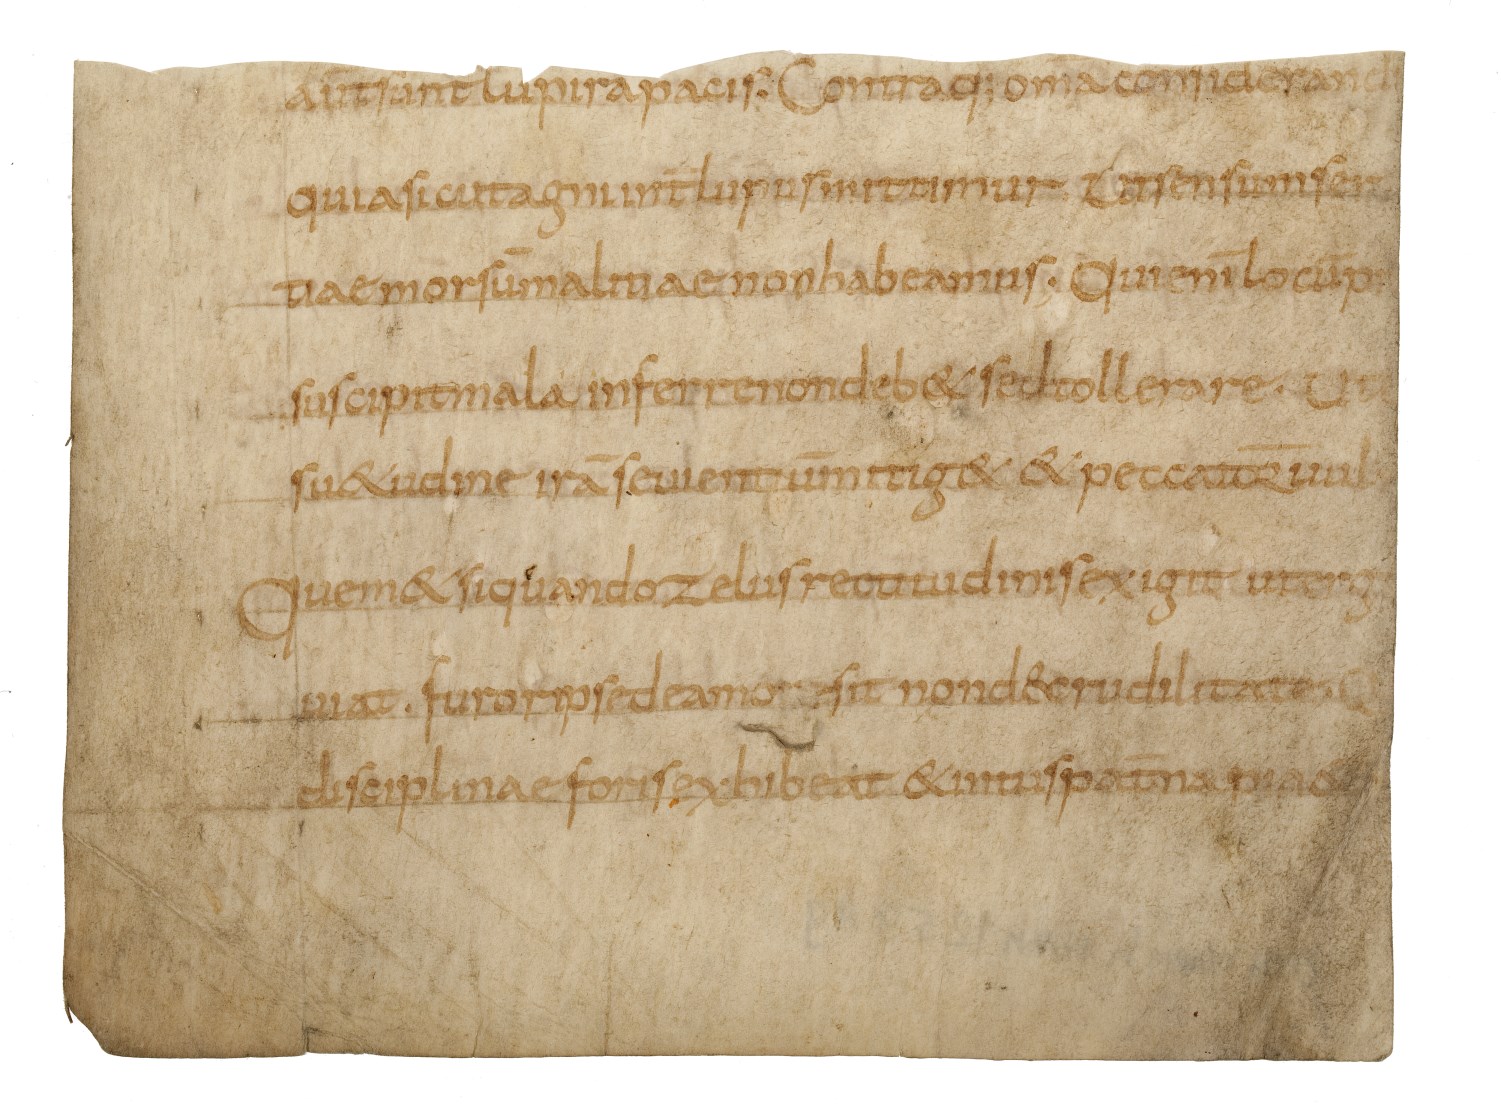 aut̄ sunt lupi rapaces. Contra q; om̄a considerand
quia sicut agni int̄ lupus mittimur Ut sensum seru
tiae morsūm alitiae non habeamus. Qui eni locū p
suscipit mala inferre non deb& sed tollerare. Ut
su&udine irā sevientiūm itig& & peccatorū uul
Quem &si quando zelus rectitudinis exigit ut erg
uiat. furor ipse de amore sit non d& crudilitate. Q
disciplinae foris exhibeat & intus pat̄na